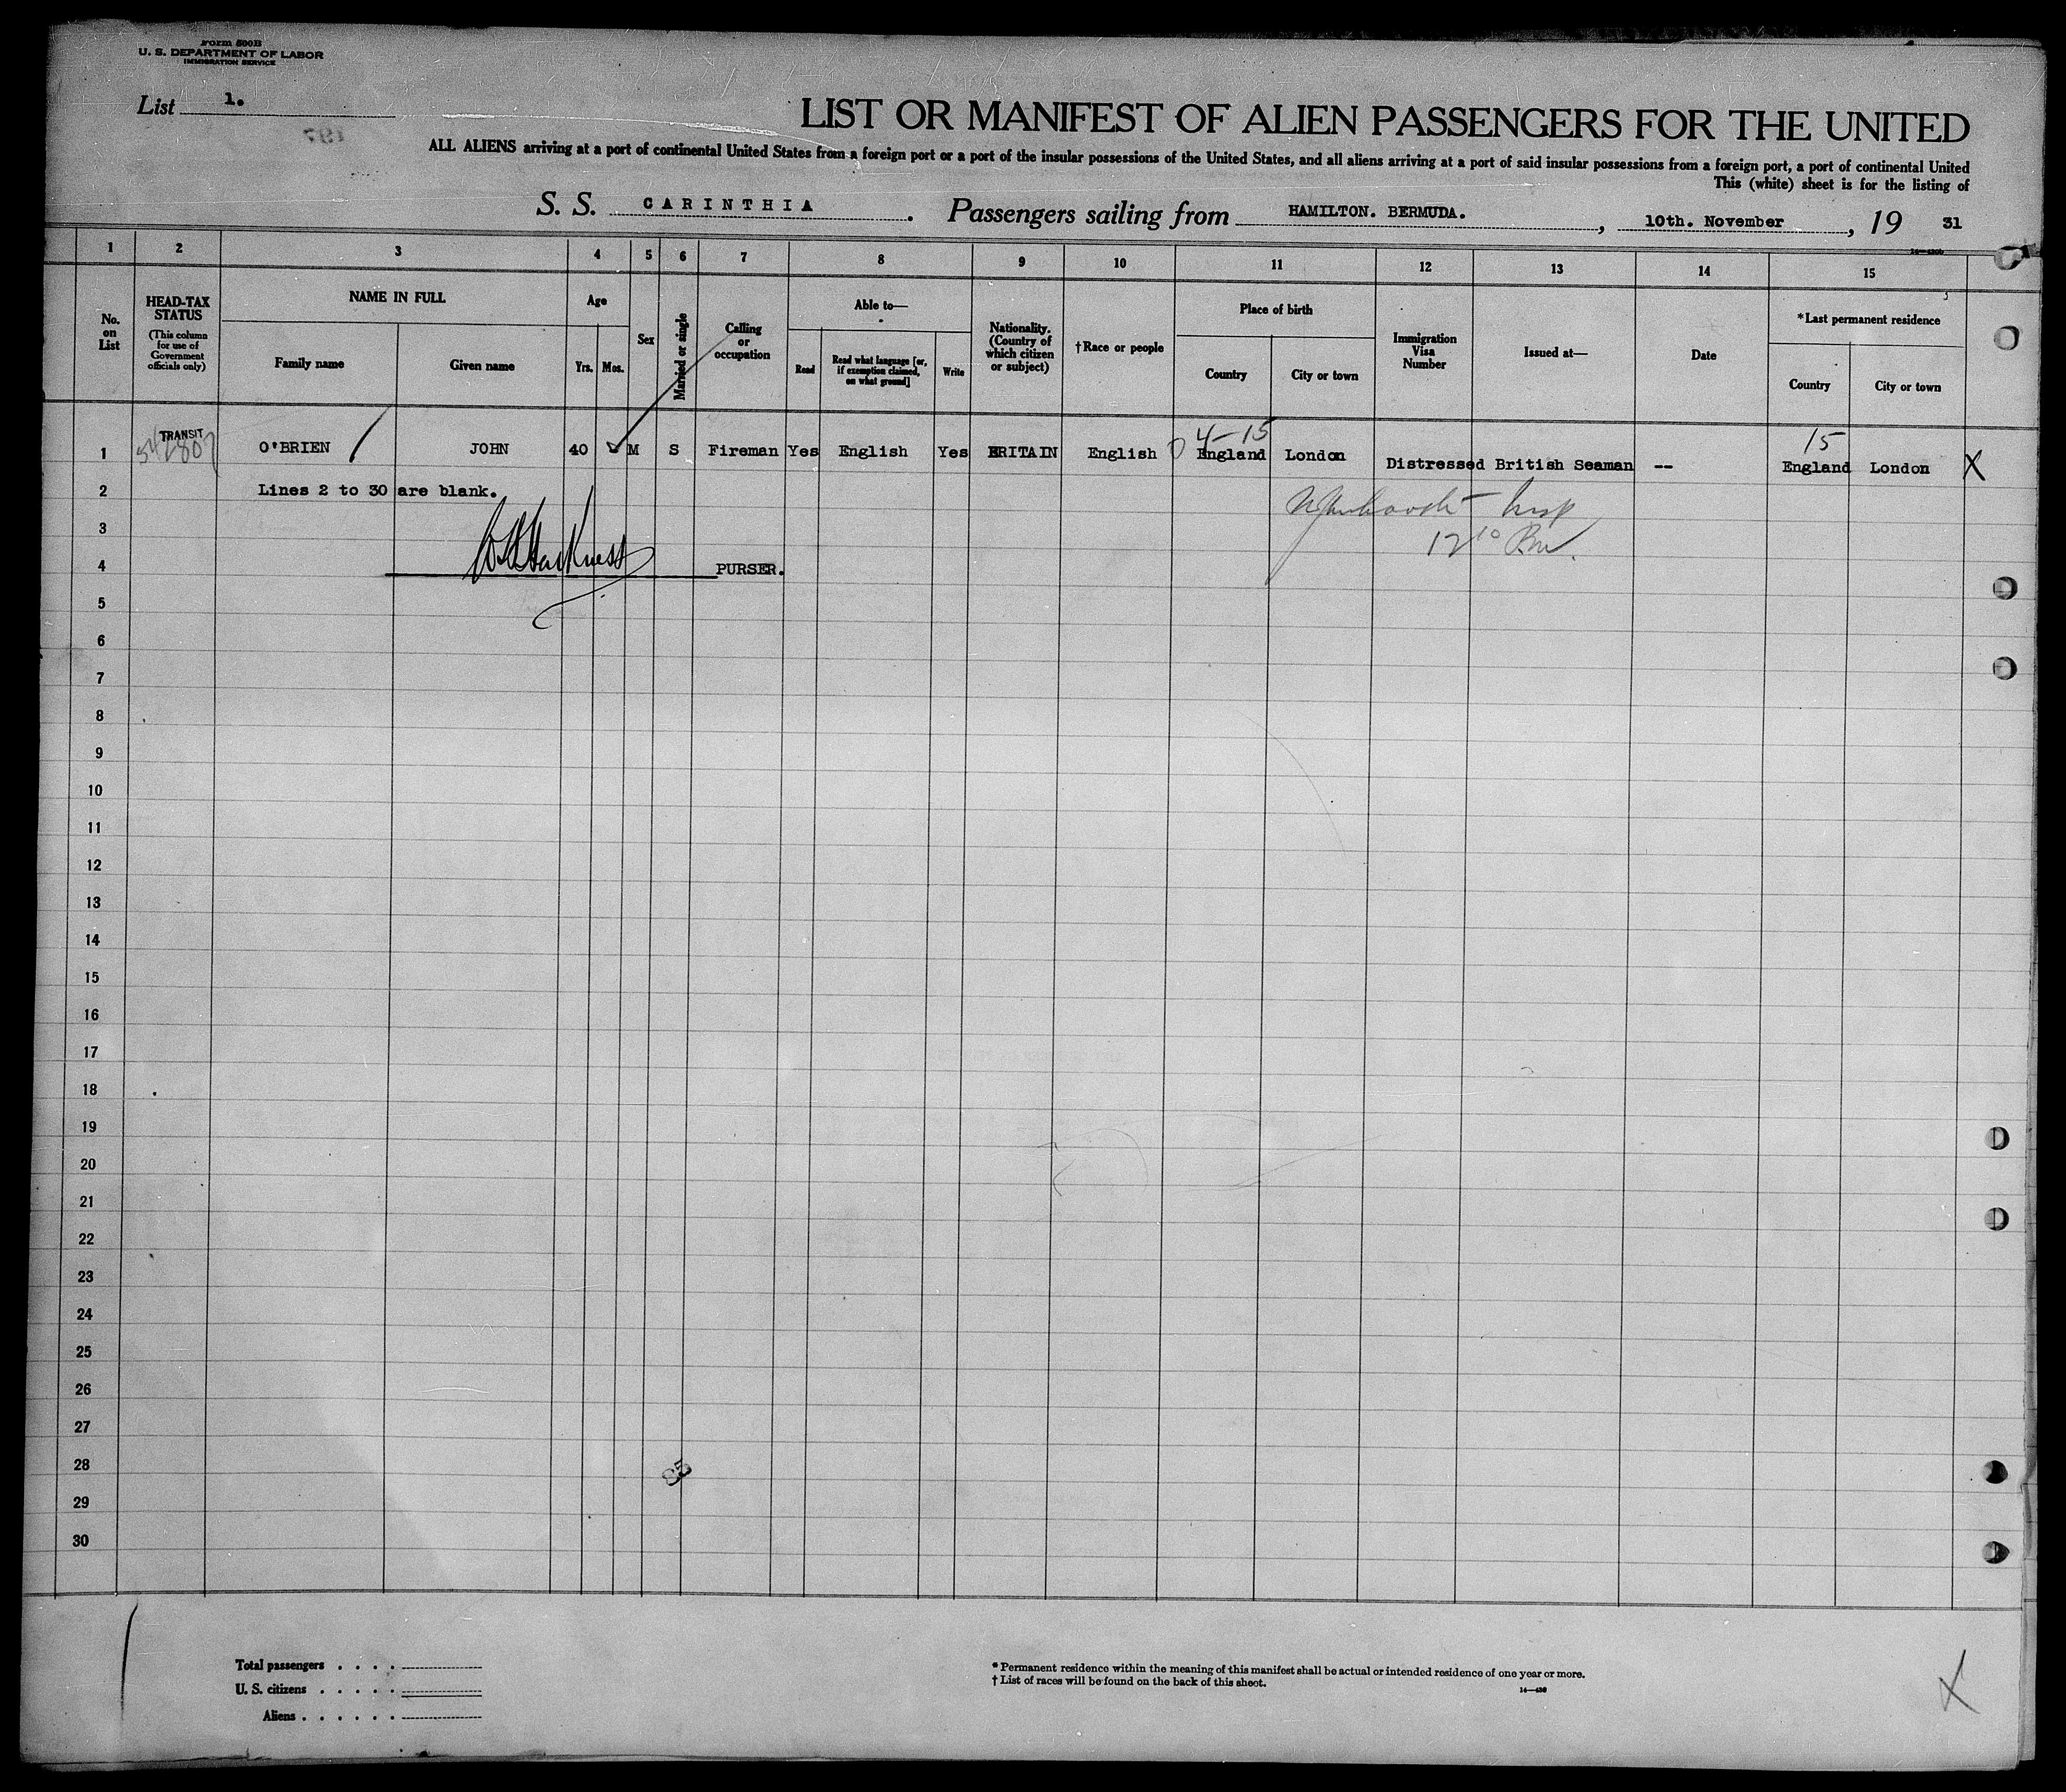 Form 500B
U. S. DEPARTMENT OF LABOR
IMMIGRATION SERVICE
List 1.
197
LIST OR MANIFEST OF ALIEN PASSENGERS FOR THE UNITED
ALL ALIENS arriving at a port of continental United States from a foreign port or a port of the insular possessions of the United States, and all aliens arriving at a port of said insular possessions from a foreign port, a port of continental United
This (white) sheet is for the listing of
S. S. CARINTHIA. Passengers sailing from HAMILTON. BERMUDA., 10th. November, 19 31
1 2 3 4 5 6 7 8 9 10 11 12 13 14 15
No. on List
HEAD-TAX STATUS
(This column for use of Government officials only)
NAME IN FULL
Family name
Given name
Age
Yrs. Mos.
Sex
Married or single
Calling or occupation
Able to—
Read
Read what language [or, if exemption claimed, on what ground]
Write
Nationality. (Country of which citizen or subject)
†Race or people
Place of birth
Country
City or town
Immigration Visa Number
Issued at—
Date
*Last permanent residence
Country
City or town
4-15
15
TRANSIT
1 O'BRIEN JOHN 40 M S Fireman Yes English Yes BRITAIN English England London Distressed British Seaman -- England London X
2 Lines 2 to 30 are blank.
3
12 10 Pm.
4 PURSER.
5
6
7
8
9
10
11
12
13
14
15
16
17
18
19
20
21
22
23
24
25
26
27
28
85
29
30
Total passengers . . . .
U. S. citizens . . . . .
Aliens . . . . . .
* Permanent residence within the meaning of this manifest shall be actual or intended residence of one year or more.
† List of races will be found on the back of this sheet.
X